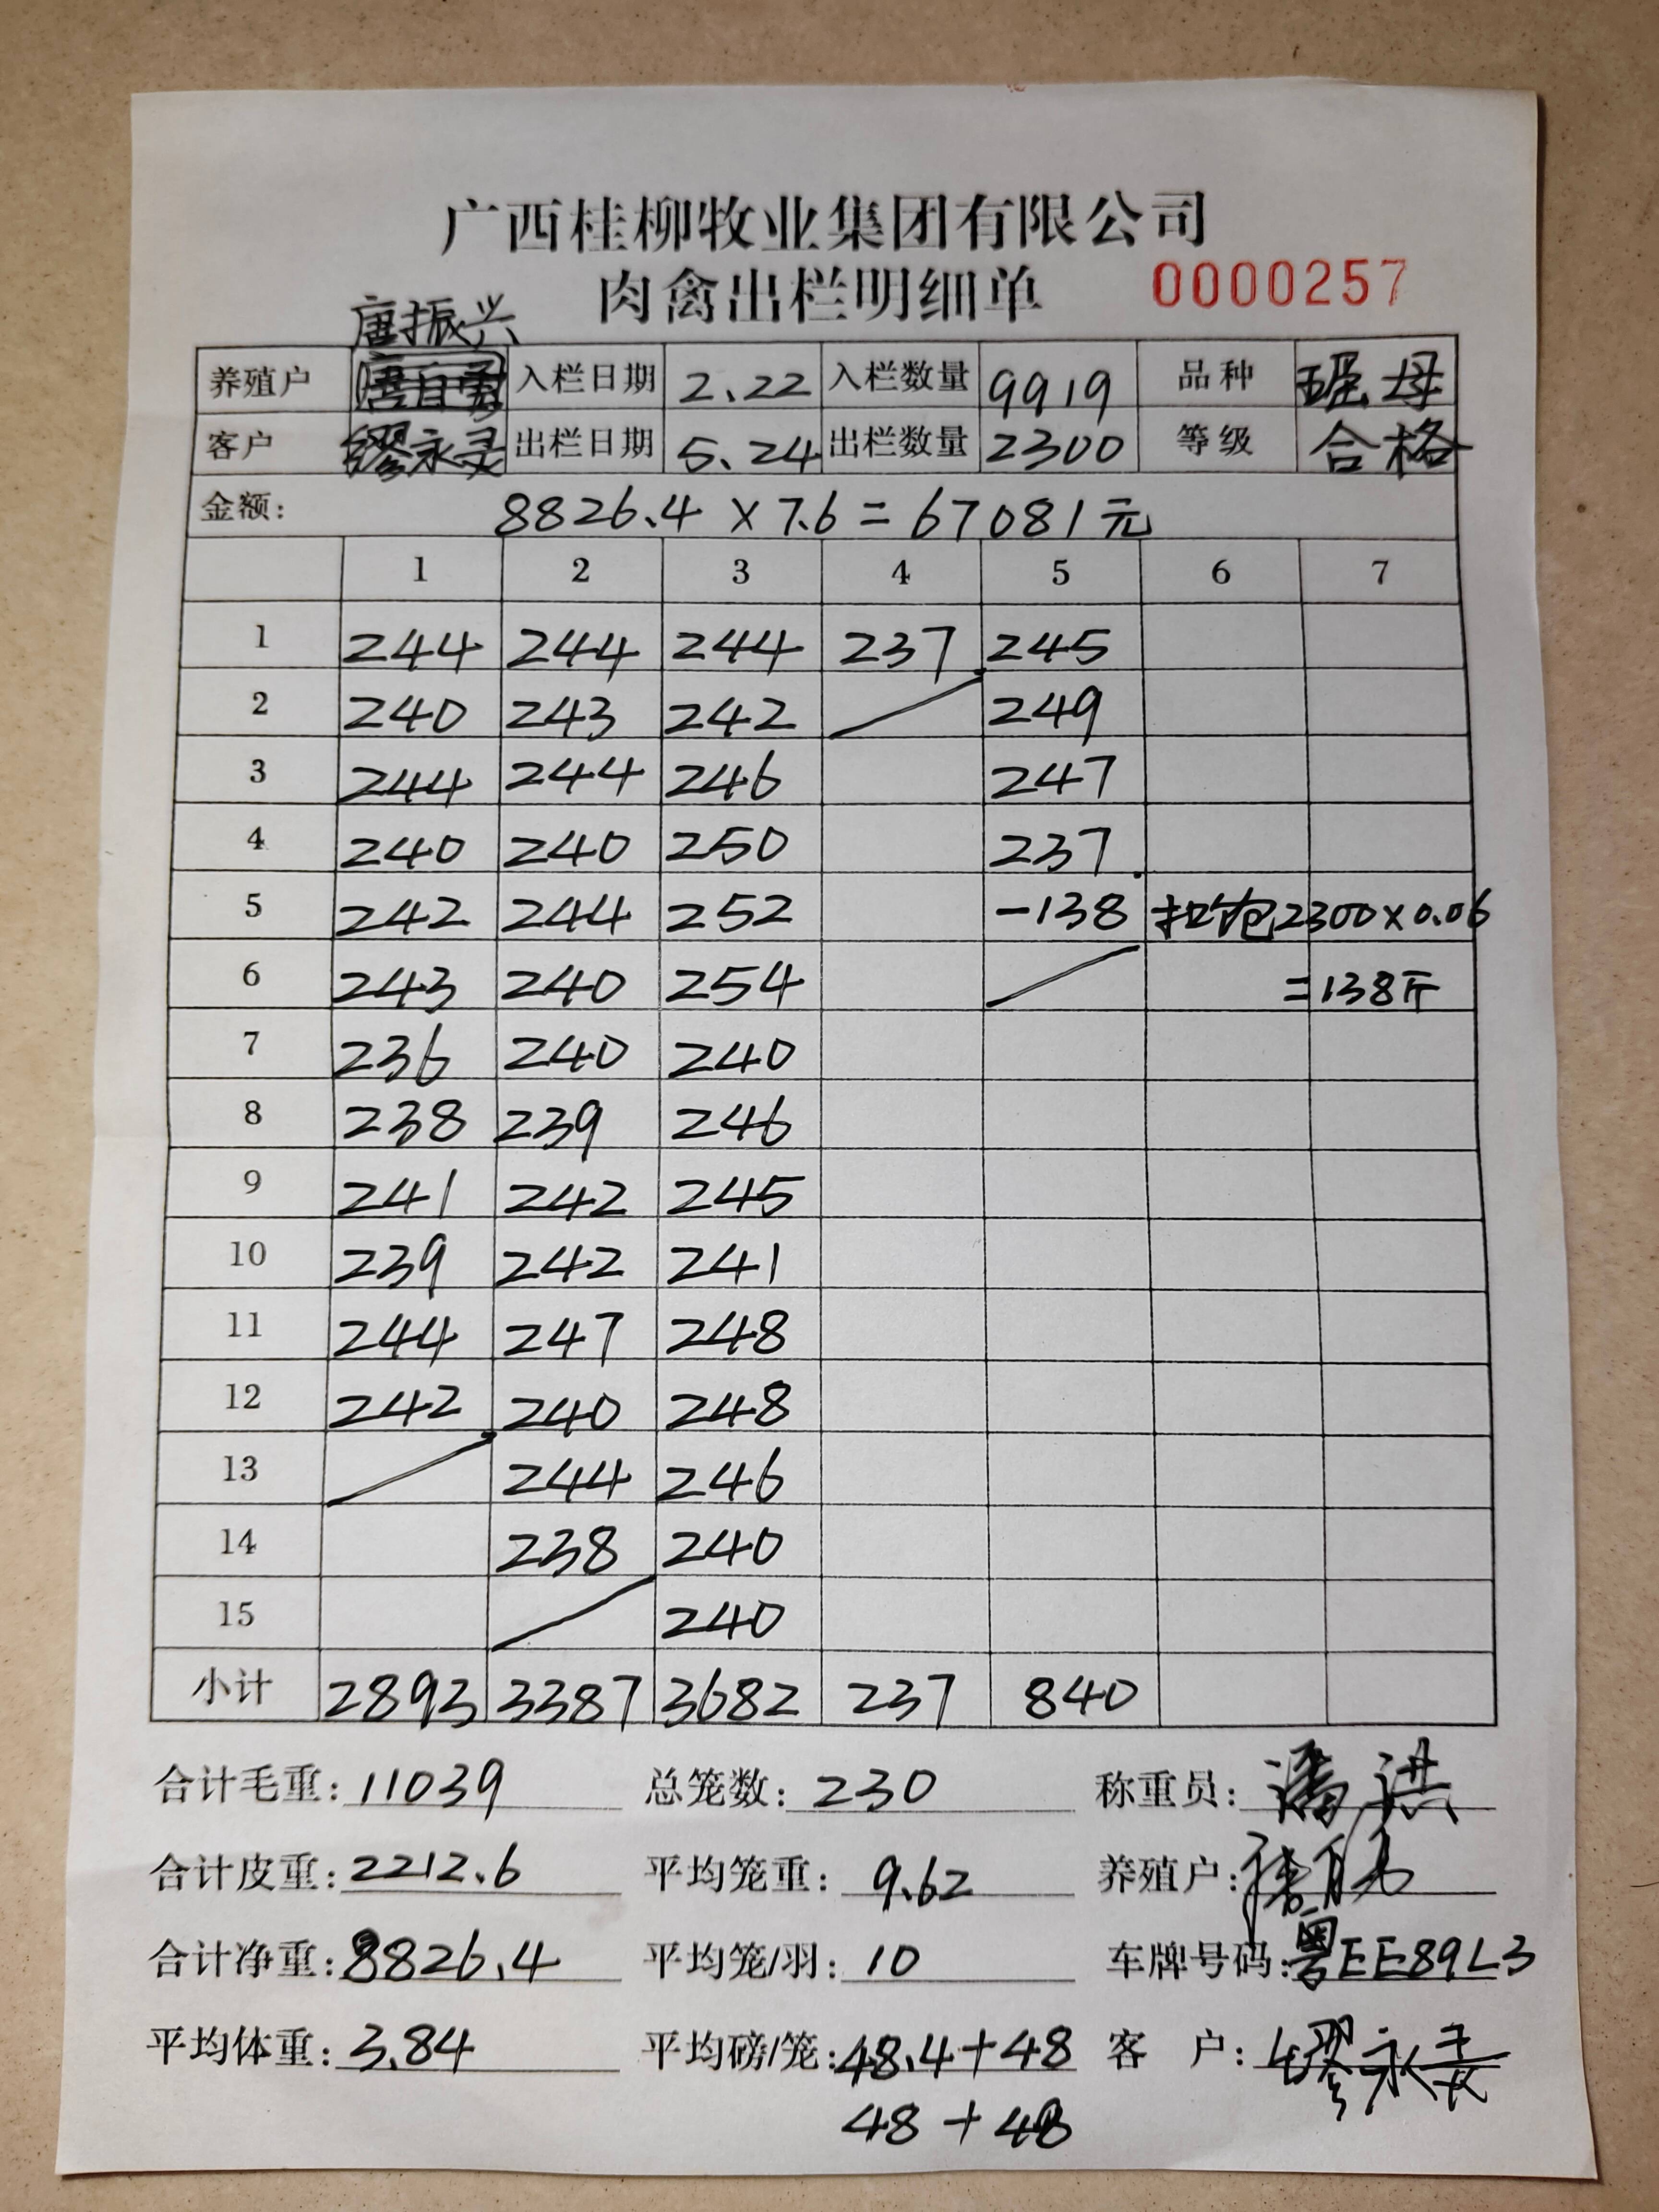 广西桂柳牧业集团有限公司
肉禽出栏明细单 0000257
唐振兴
养殖户 入栏日期 2.22 入栏数量 9919 品种 母
客户 缪永灵 出栏日期 5.24 出栏数量 2300 等级 合格
金额: 8826.4 × 7.6 = 67081元
1 2 3 4 5 6 7
1 244 244 244 237 245
2 240 243 242 249
3 244 244 246 247
4 240 240 250 237
5 242 244 252 -138 扣饱2300×0.06
6 243 240 254 =138斤
7 236 240 240
8 238 239 246
9 241 242 245
10 239 242 241
11 244 247 248
12 242 240 248
13 244 246
14 238 240
15 240
小计 2893 3387 3682 237 840
合计毛重: 11039 总笼数: 230 称重员: 潘洪
合计皮重: 2212.6 平均笼重: 9.62 养殖户:
合计净重: 8826.4 平均笼/羽: 10 车牌号码: 粤EE89L3
平均体重: 3.84 平均磅/笼: 48.4+48 客户: 缪永灵
48+48